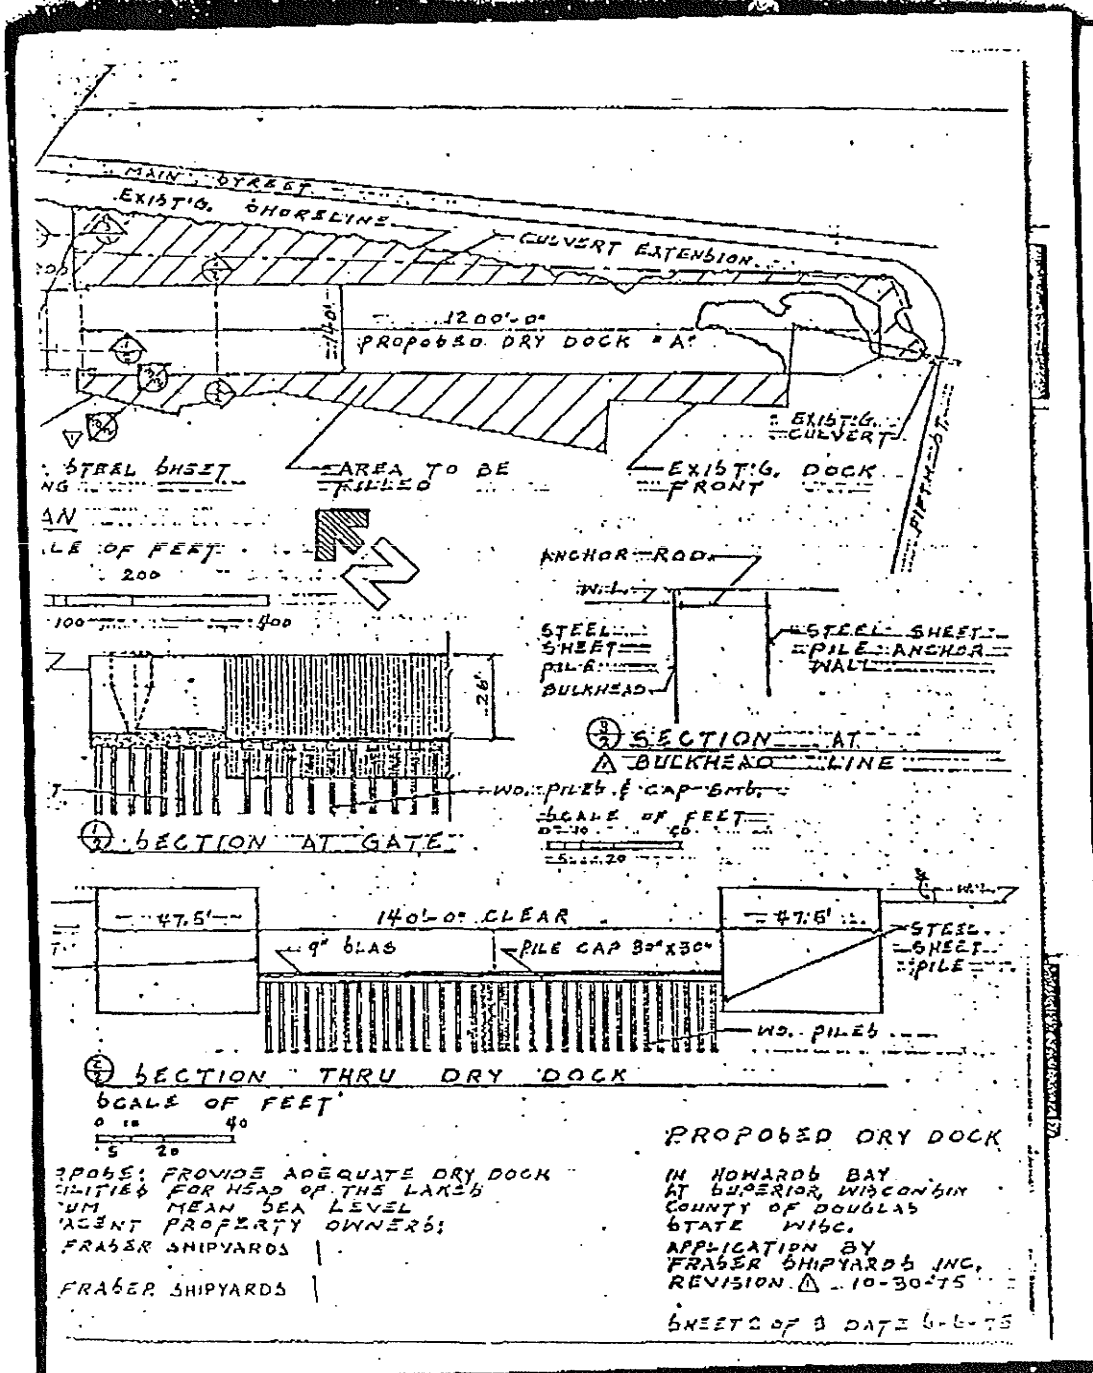 MAIN STREET
EXIST'G. SHORELINE
CULVERT EXTENSION
1200'-0"
140'
PROPOSED DRY DOCK "A"
EXIST'G.
CULVERT
STEEL SHEET
NG
AREA TO BE
FILLED
EXIST'G. DOCK
FRONT
FIFTH ST.
AN
LE OF FEET
200
100 400
ANCHOR ROD
W.L.
STEEL
SHEET
PILE
BULKHEAD
STEEL SHEET
PILE ANCHOR
WALL
26'
SECTION AT
BULKHEAD LINE
WD. PILES & CAP
SCALE OF FEET
5 20
SECTION AT GATE
47.5' 140'-0" CLEAR 47.5'
9" SLAB PILE CAP 30"X30"
STEEL
SHEET
PILE
WD. PILES
SECTION THRU DRY DOCK
SCALE OF FEET
0 10 40
5 20
RPOSE: PROVIDE ADEQUATE DRY DOCK
CILITIES FOR HEAD OF THE LAKES
TUM MEAN SEA LEVEL
JACENT PROPERTY OWNERS:
FRASER SHIPYARDS
FRASER SHIPYARDS
PROPOSED DRY DOCK
IN HOWARDS BAY
AT SUPERIOR, WISCONSIN
COUNTY OF DOUGLAS
STATE WISC.
APPLICATION BY
FRASER SHIPYARDS INC.
REVISION 1 10-30-75
SHEET 2 OF 3 DATE 6-6-75